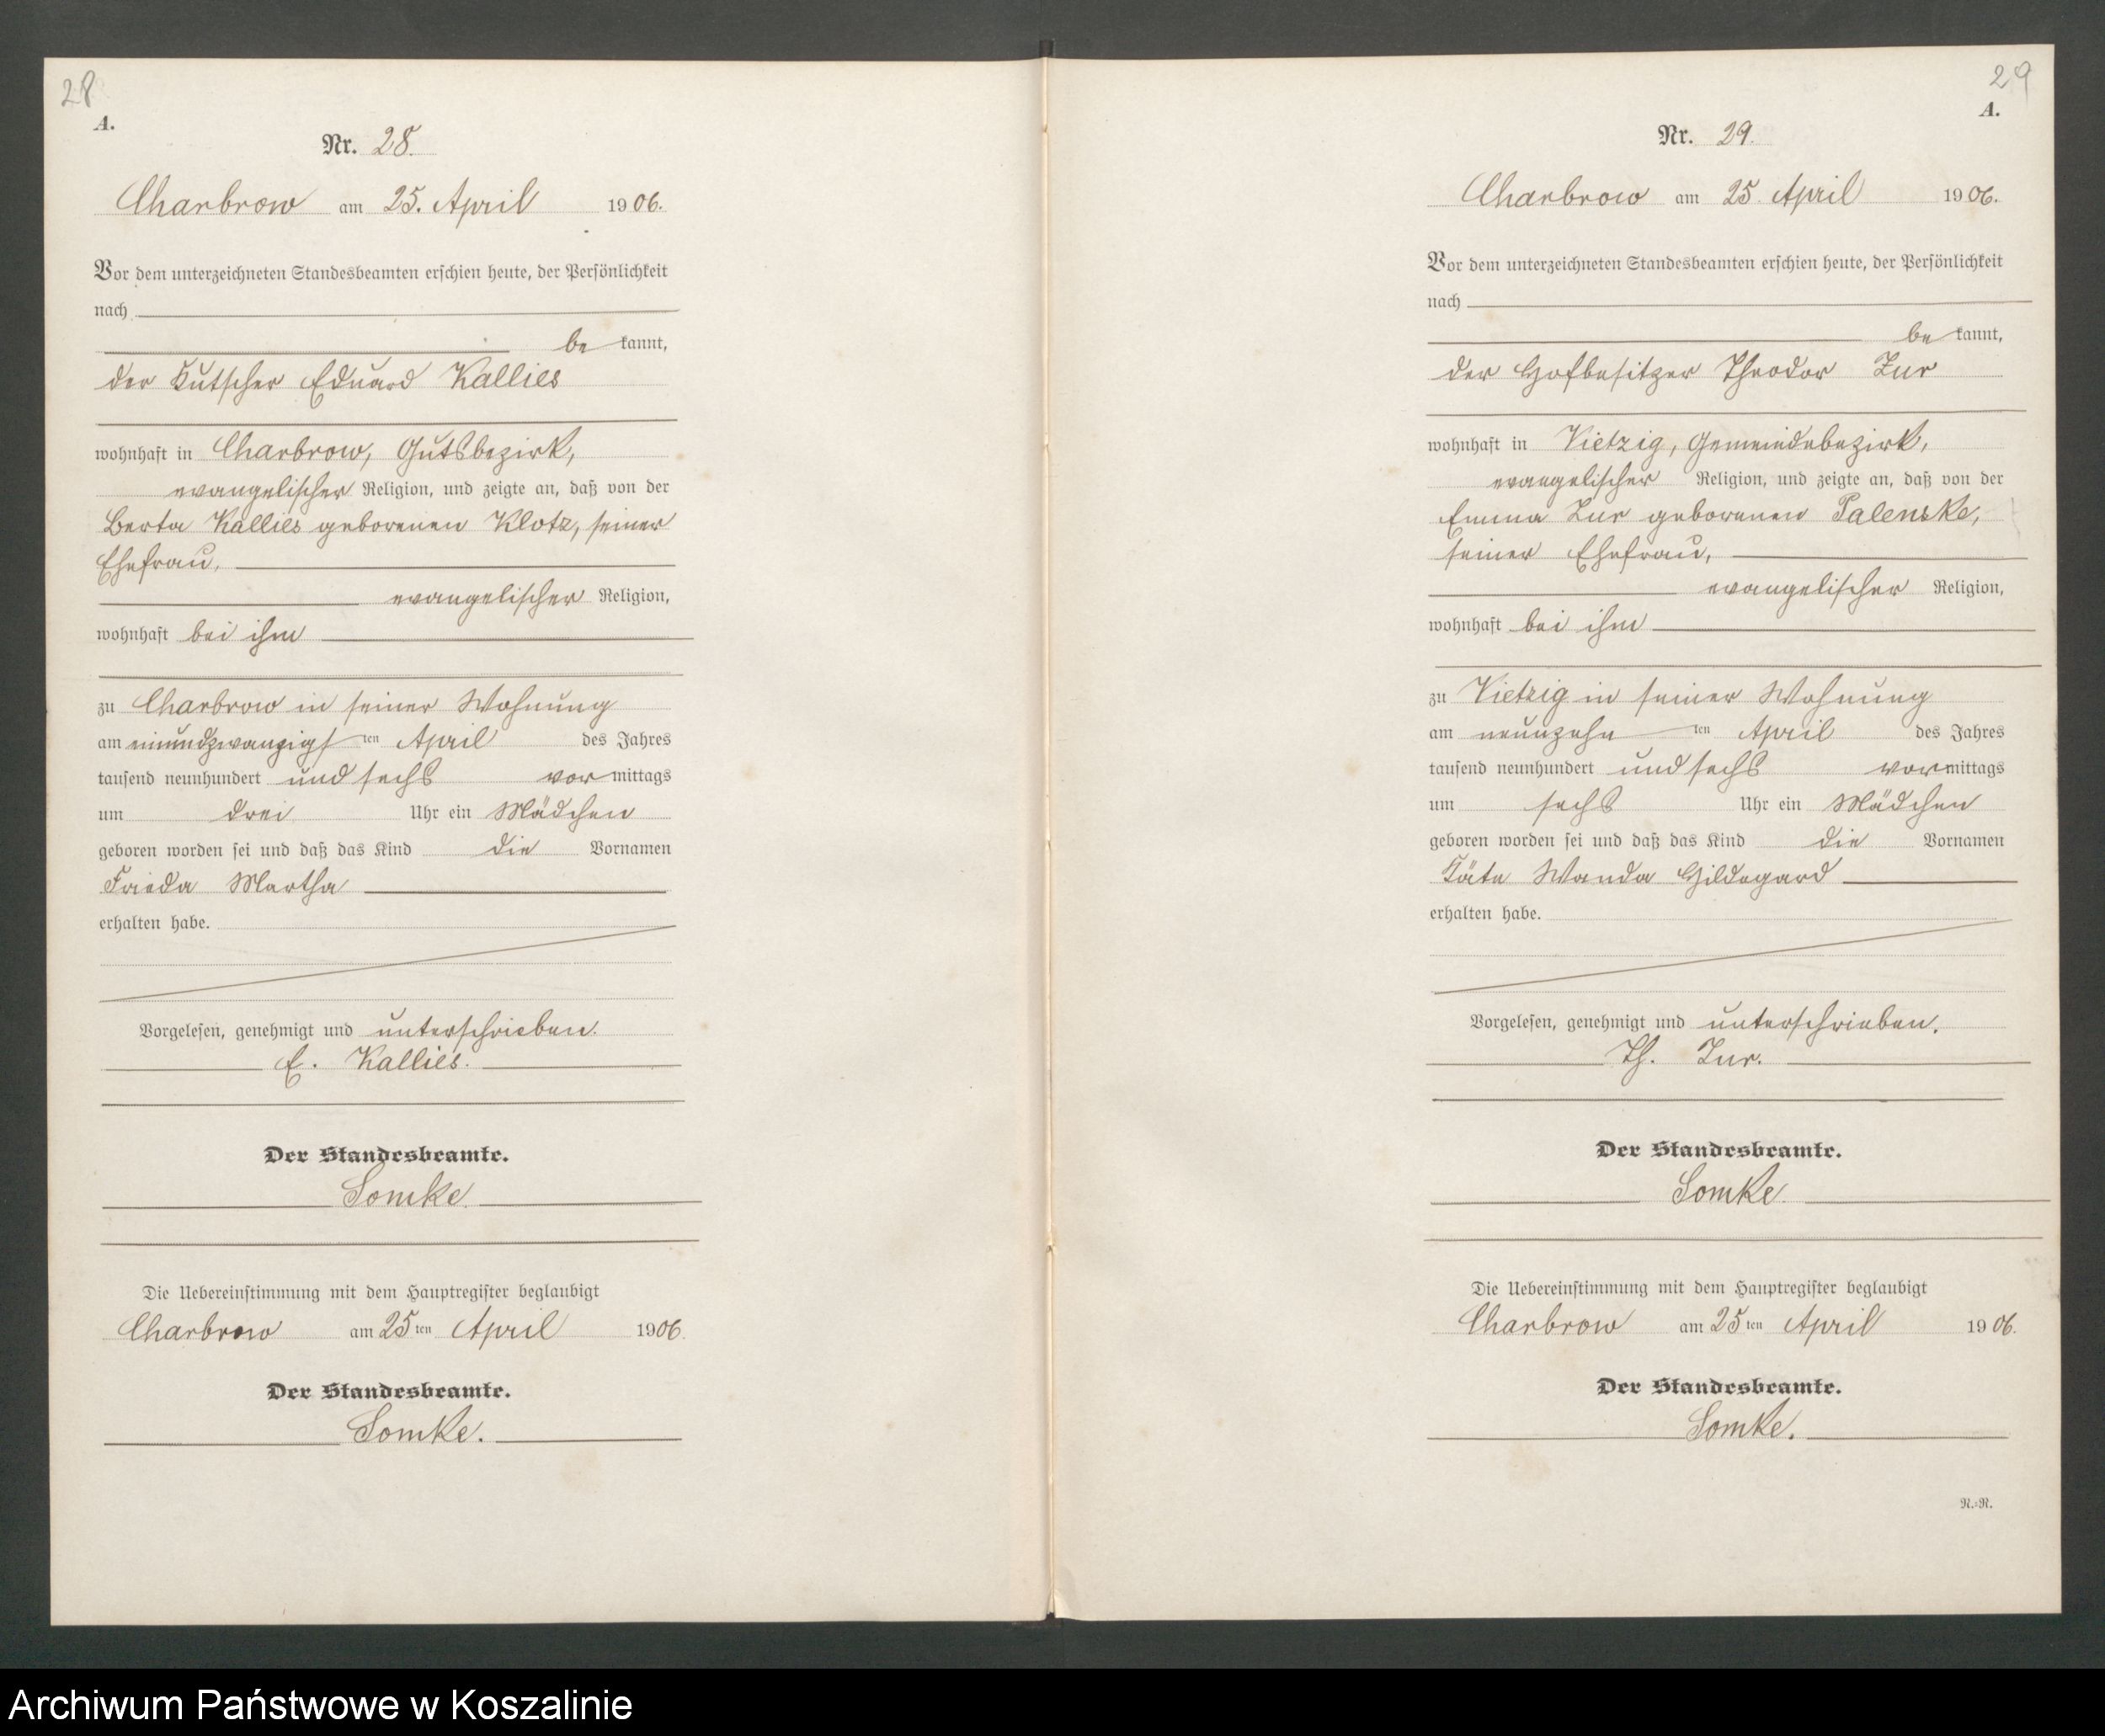 28
A.
Nr. 28.
Charbrow am 25. April 1906.
Vor dem unterzeichneten Standesbeamten erschien heute, der Persönlichkeit
nach
be kannt,
der Kutscher Eduard Kallies
wohnhaft in Charbrow, Gutsbezirk,
evangelischer Religion, und zeigte an, daß von der
Berta Kallies geborenen Klotz, seiner
Ehefrau,
evangelischer Religion,
wohnhaft bei ihm
zu Charbrow in seiner Wohnung
am einundzwanzigsten April des Jahres
tausend neunhundert und sechs vormittags
um drei Uhr ein Mädchen
geboren worden sei und daß das Kind die Vornamen
Frieda Martha
erhalten habe.
Vorgelesen, genehmigt und unterschrieben.
E. Kallies.
Der Standesbeamte.
Somke.
Die Uebereinstimmung mit dem Hauptregister beglaubigt
Charbrow am 25ten April 1906.
Der Standesbeamte.
Somke.
29
A.
Nr. 29.
Charbrow am 25. April 1906.
Vor dem unterzeichneten Standesbeamten erschien heute, der Persönlichkeit
nach
be kannt,
der Hofbesitzer Theodor Zur
wohnhaft in Vietzig, Gemeindebezirk,
evangelischer Religion, und zeigte an, daß von der
Emma Zur geborenen Palenske,
seiner Ehefrau,
evangelischer Religion,
wohnhaft bei ihm
zu Vietzig in seiner Wohnung
am neunzehn ten April des Jahres
tausend neunhundert und sechs vormittags
um sechs Uhr ein Mädchen
geboren worden sei und daß das Kind die Vornamen
Käte Wanda Hildegard
erhalten habe.
Vorgelesen, genehmigt und unterschrieben.
Th. Zur.
Der Standesbeamte.
Somke.
Die Uebereinstimmung mit dem Hauptregister beglaubigt
Charbrow am 25ten April 1906.
Der Standesbeamte.
Somke.
N.=N.
Archiwum Państwowe w Koszalinie